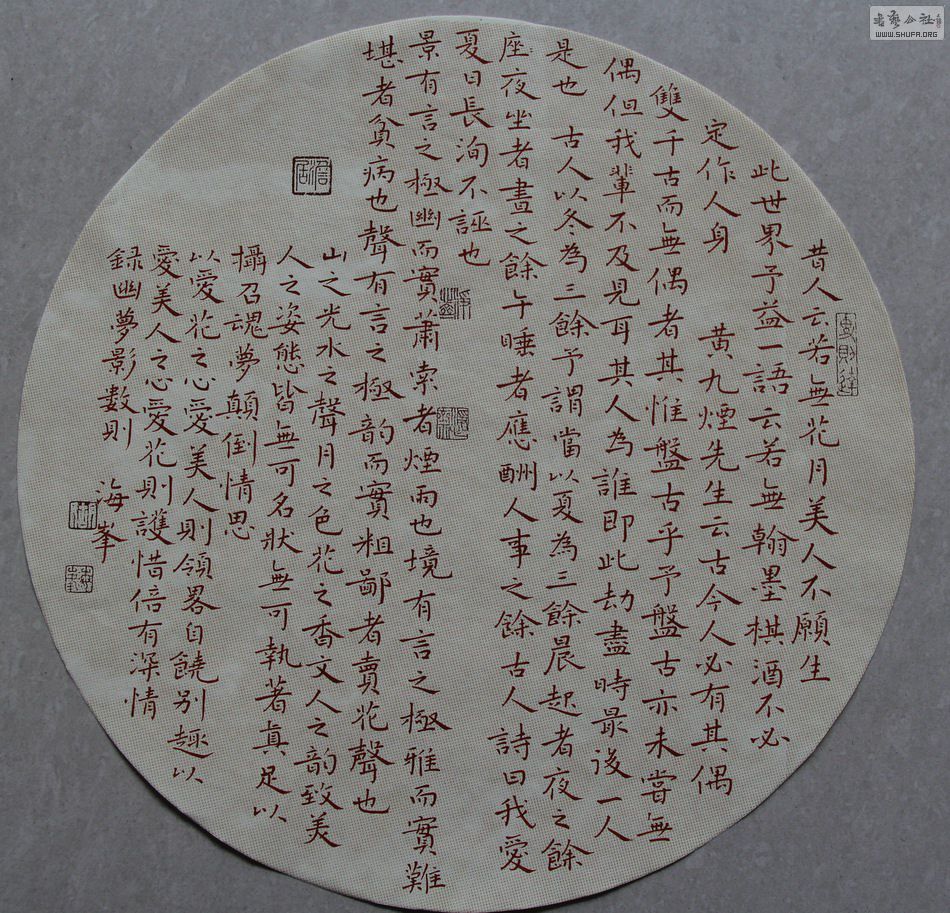 昔人云若無花月美人不願生
此世界予益一語云若無翰墨棋酒不必
定作人身 黄九煙先生云古今人必有其偶
雙千古而無偶者其惟盤古乎予盤古亦未嘗無
偶但我輩不及見耳其人為誰即此劫盡時最後一人
是也 古人以冬為三餘予謂當以夏為三餘晨起者夜之餘
座夜坐者晝之餘午睡者應酬人事之餘古人詩曰我愛
夏日長洵不誣也
景有言之極幽而實蕭索者煙雨也境有言之極雅而實難
堪者貧病也聲有言之極韵而實粗鄙者賣花聲也
山之光水之聲月之色花之香文人之韵致美
人之姿態皆無可名狀無可執著真足以
攝召魂夢顛倒情思
以愛花之心愛美人則領畧自饒别趣以
愛美人之心愛花則護惜倍有深情
録幽夢影數則
海峯
書藝公社
WWW.SHUFA.ORG